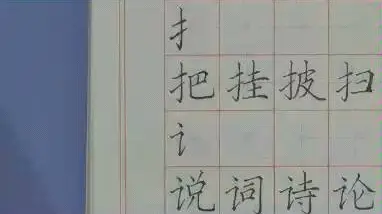 扌
把挂披扫
讠
说词诗论